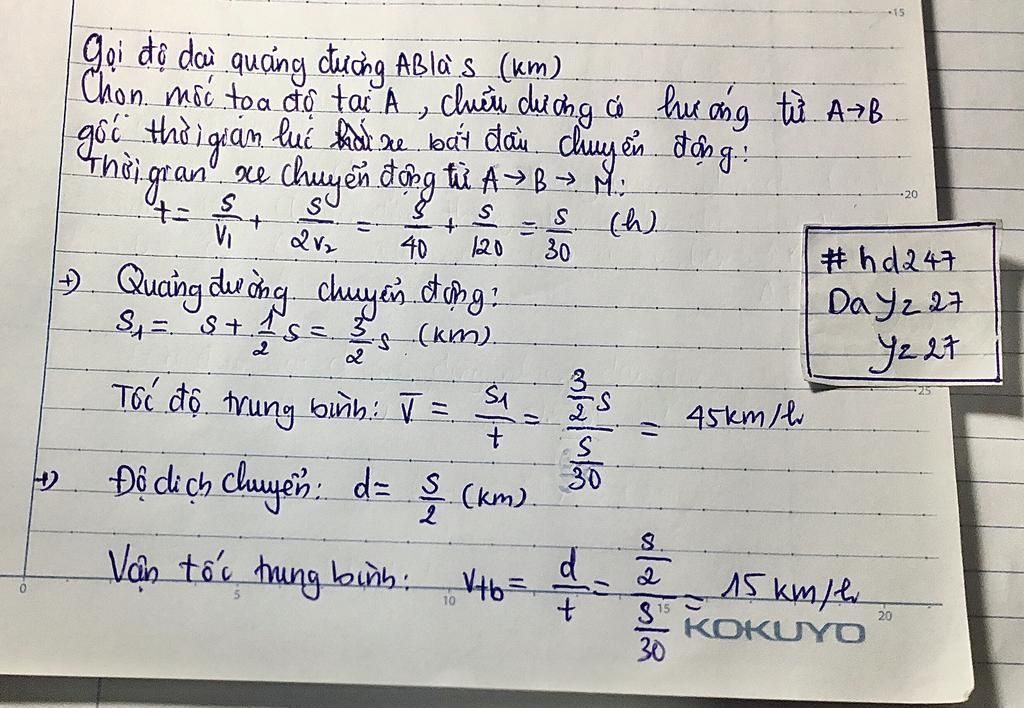 15
Gọi độ dài quảng đường AB là S (km)
Chọn mốc tọa độ tại A, chiều dương có hướng từ A→B
gốc thời gian lúc xe bắt đầu chuyển động:
Thời gian xe chuyển động từ A→B→M:
20
t = S/V₁ + S/2V₂ = S/40 + S/120 = S/30 (h)
#hd247
Dayz27
yz27
+) Quảng đường chuyển động:
S₁ = S + 1/2 S = 3/2 S (km)
25
Tốc độ trung bình: V̅ = S₁/t = (3/2 S)/(S/30) = 45km/h
+) Độ dịch chuyển: d = S/2 (km)
Vận tốc trung bình: Vtb = d/t = (S/2)/(S/30) = 15 km/h
0 5 10 15 20
KOKUYO